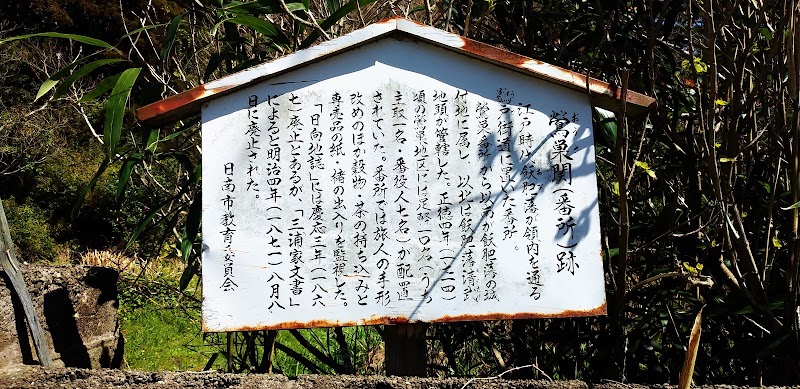 鶯巣関(番所)跡
江戸時代、飫肥藩が領内を通る
街道に置いた番所。
鶯巣 から以南が飫肥藩の城
付地に属し、以北は飫肥藩清武
地頭が管轄した。正徳四年(一七一四)
頃の鶯巣地区には足軽一〇名(うち
主取一名・番役人七名)が配置
されていた。番所では旅人の手形
改めのほか穀物・茶の持ち込みと
専売品の紙・楮の出入りを監視した。
「日向地誌」には慶応三年(一八六
七)廃止とあるが、「三浦家文書」
によると明治四年(一八七一)八月八
日に廃止された。
日南市教育委員会